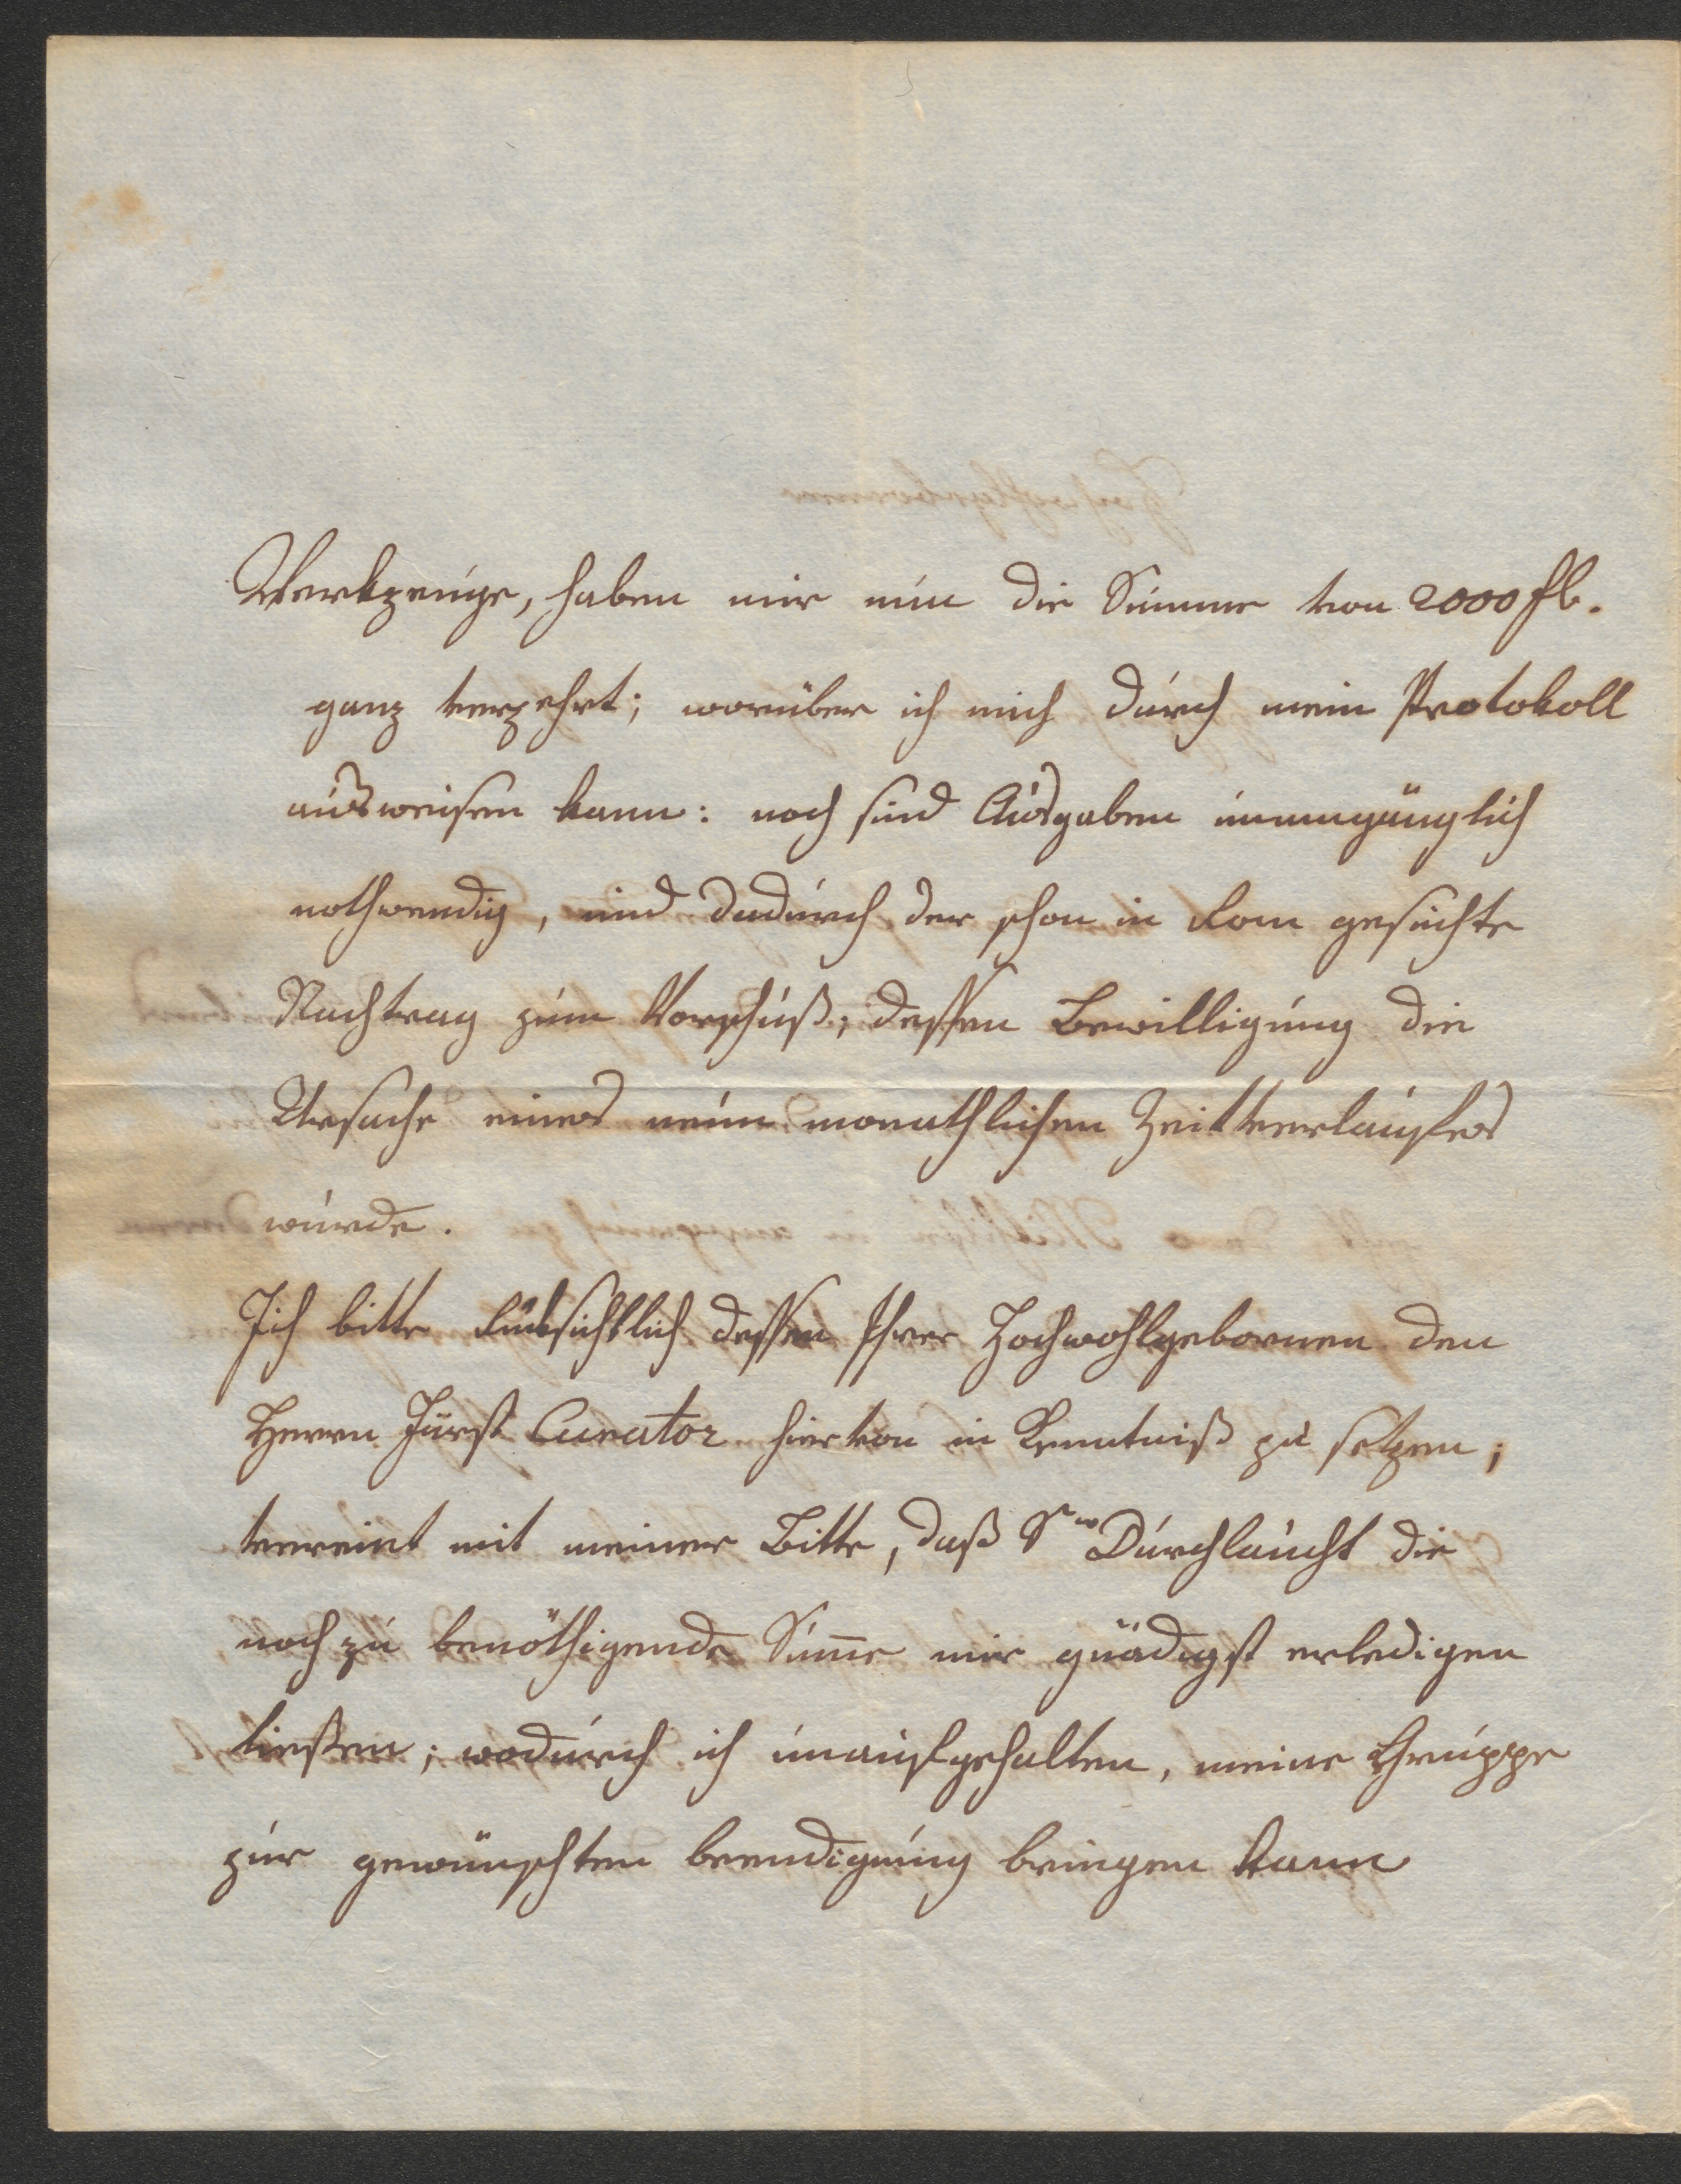 Werkzeuge, haben mir nun die Summe von 2000 fl.
ganz verzehrt; worüber ich mich durch mein Protokoll
ausweisen kann: noch sind Ausgaben unumgänglich
nothwendig, und dadurch der schon in Rom gesuchte
Nachtrag zum Vorschuß; dessen Bewilligung die
Ursache eines neun monathlichen Zeitverlaufes
wurde.
Ich bitte Rücksichtlich dessen Ihrer Hochwohlgebornen den
Herrn Fürst Curator hiervon in Kenntniß zu setzen;
vereint mit meiner Bitte, daß Sr Durchlaucht die
noch zu benöthigende Sum̄e mir gnädigst erledigen
ließen; wodurch ich unaufgehalten, meine Gruppe
zur gewünschten beendigung bringen kann